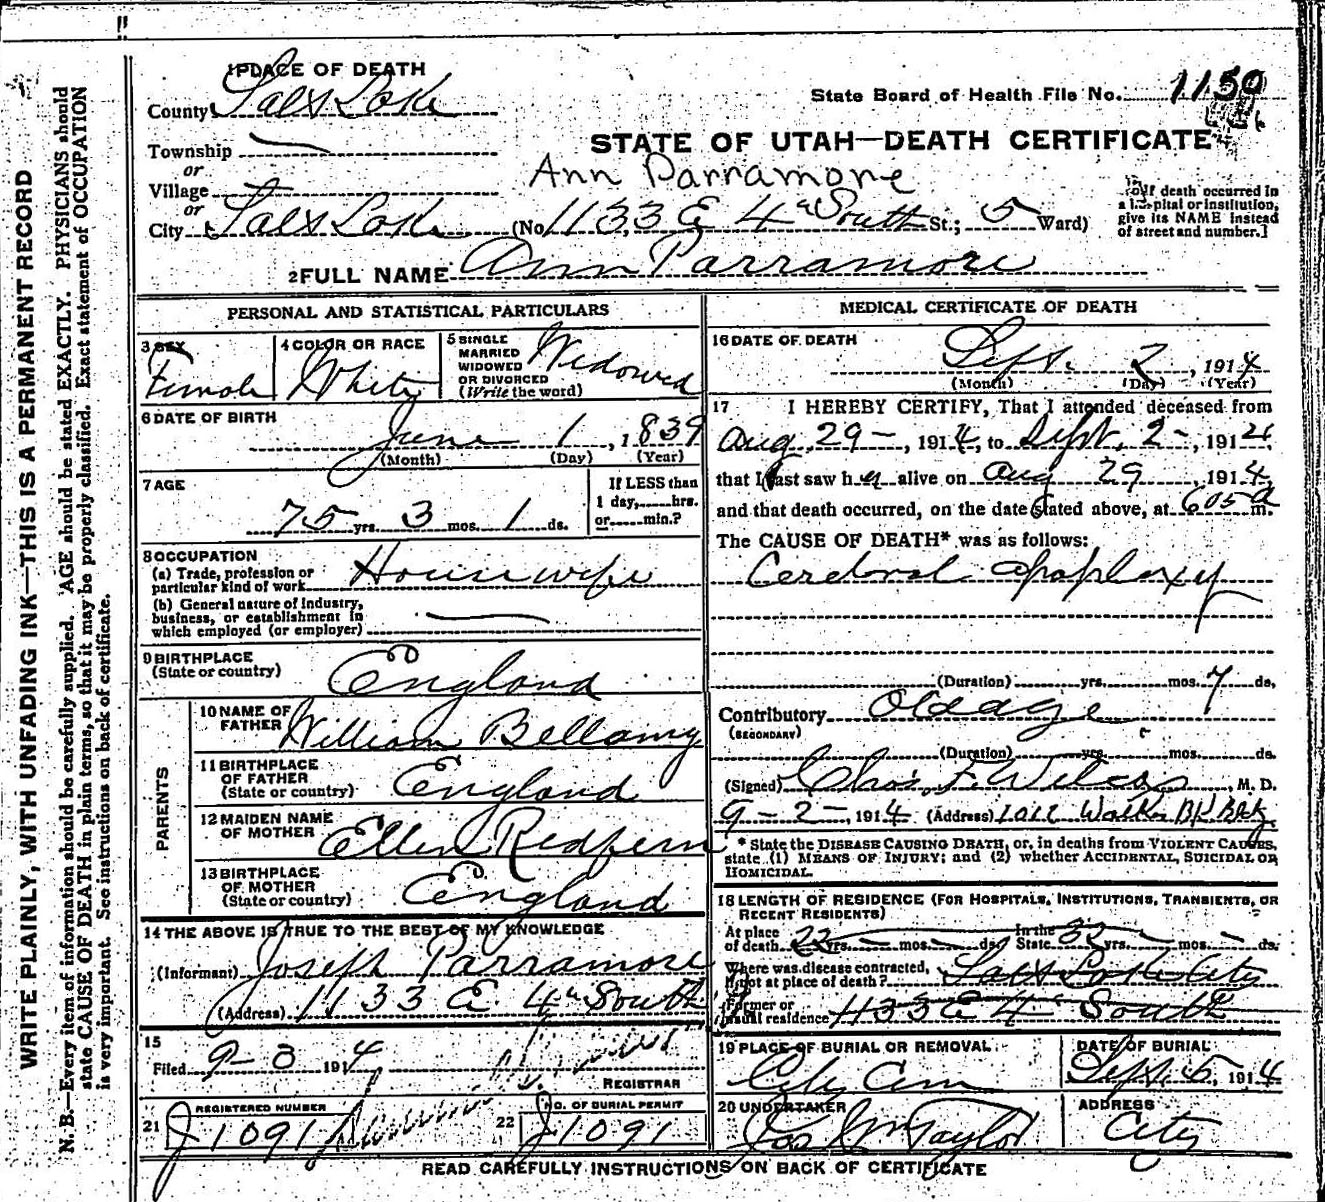 1 PLACE OF DEATH
County Salt Lake
State Board of Health File No. 1150
Township
STATE OF UTAH—DEATH CERTIFICATE
or
Village
Ann Parramore
or
City Salt Lake (No 1133 E 4th South St.; 5 Ward)
If death occurred in
a hospital or institution,
give its NAME instead
of street and number.]
2 FULL NAME Ann Parramore
PERSONAL AND STATISTICAL PARTICULARS
3 SEX
Female
4 COLOR OR RACE
White
5 SINGLE
MARRIED
WIDOWED
OR DIVORCED
(Write the word)
Widowed
6 DATE OF BIRTH
June 1, 1839
(Month) (Day) (Year)
7 AGE
75 yrs. 3 mos. 1 ds.
If LESS than
1 day, hrs.
or min.?
8 OCCUPATION
(a) Trade, profession or
particular kind of work Housewife
(b) General nature of industry,
business, or establishment in
which employed (or employer)
9 BIRTHPLACE
(State or country) England
PARENTS
10 NAME OF
FATHER William Bellamy
11 BIRTHPLACE
OF FATHER
(State or country) England
12 MAIDEN NAME
OF MOTHER Ellen Redfern
13 BIRTHPLACE
OF MOTHER
(State or country) England
14 THE ABOVE IS TRUE TO THE BEST OF MY KNOWLEDGE
(Informant) Joseph Parramore
(Address) 1133 E 4th South
15
Filed 9-3 1914
REGISTRAR
21 REGISTERED NUMBER
J1091
22 NO. OF BURIAL PERMIT
J1091
MEDICAL CERTIFICATE OF DEATH
16 DATE OF DEATH
Sept. 2, 1914
(Month) (Day) (Year)
17 I HEREBY CERTIFY, That I attended deceased from
Aug 29-, 1914, to Sept. 2-, 1914
that I last saw her alive on Aug 29, 1914
and that death occurred, on the date stated above, at 605 a m.
The CAUSE OF DEATH* was as follows:
Cerebral apoplexy
(Duration) yrs. mos. 7 ds.
Contributory Old age
(SECONDARY)
(Duration) yrs. mos. ds.
(Signed) Chas. F. Wilcox, M. D.
9-2-, 1914 (Address) 1011 Walker Bk Bldg
* State the DISEASE CAUSING DEATH, or, in deaths from VIOLENT CAUSES,
state (1) MEANS OF INJURY; and (2) whether ACCIDENTAL, SUICIDAL OR
HOMICIDAL.
18 LENGTH OF RESIDENCE (FOR HOSPITALS, INSTITUTIONS, TRANSIENTS, OR
RECENT RESIDENTS)
At place
of death 22 yrs. mos. ds. In the
State 32 yrs. - mos. - ds.
Where was disease contracted,
if not at place of death? Salt Lake City
Former or
usual residence 1133 E 4th South
19 PLACE OF BURIAL OR REMOVAL
City Cem
DATE OF BURIAL
Sept. 5, 1914
20 UNDERTAKER
Jos Wm Taylor
ADDRESS
City
READ CAREFULLY INSTRUCTIONS ON BACK OF CERTIFICATE
WRITE PLAINLY, WITH UNFADING INK—THIS IS A PERMANENT RECORD
N. B.—Every item of information should be carefully supplied. AGE should be stated EXACTLY. PHYSICIANS should
state CAUSE OF DEATH in plain terms, so that it may be properly classified. Exact statement of OCCUPATION
is very important. See instructions on back of certificate.